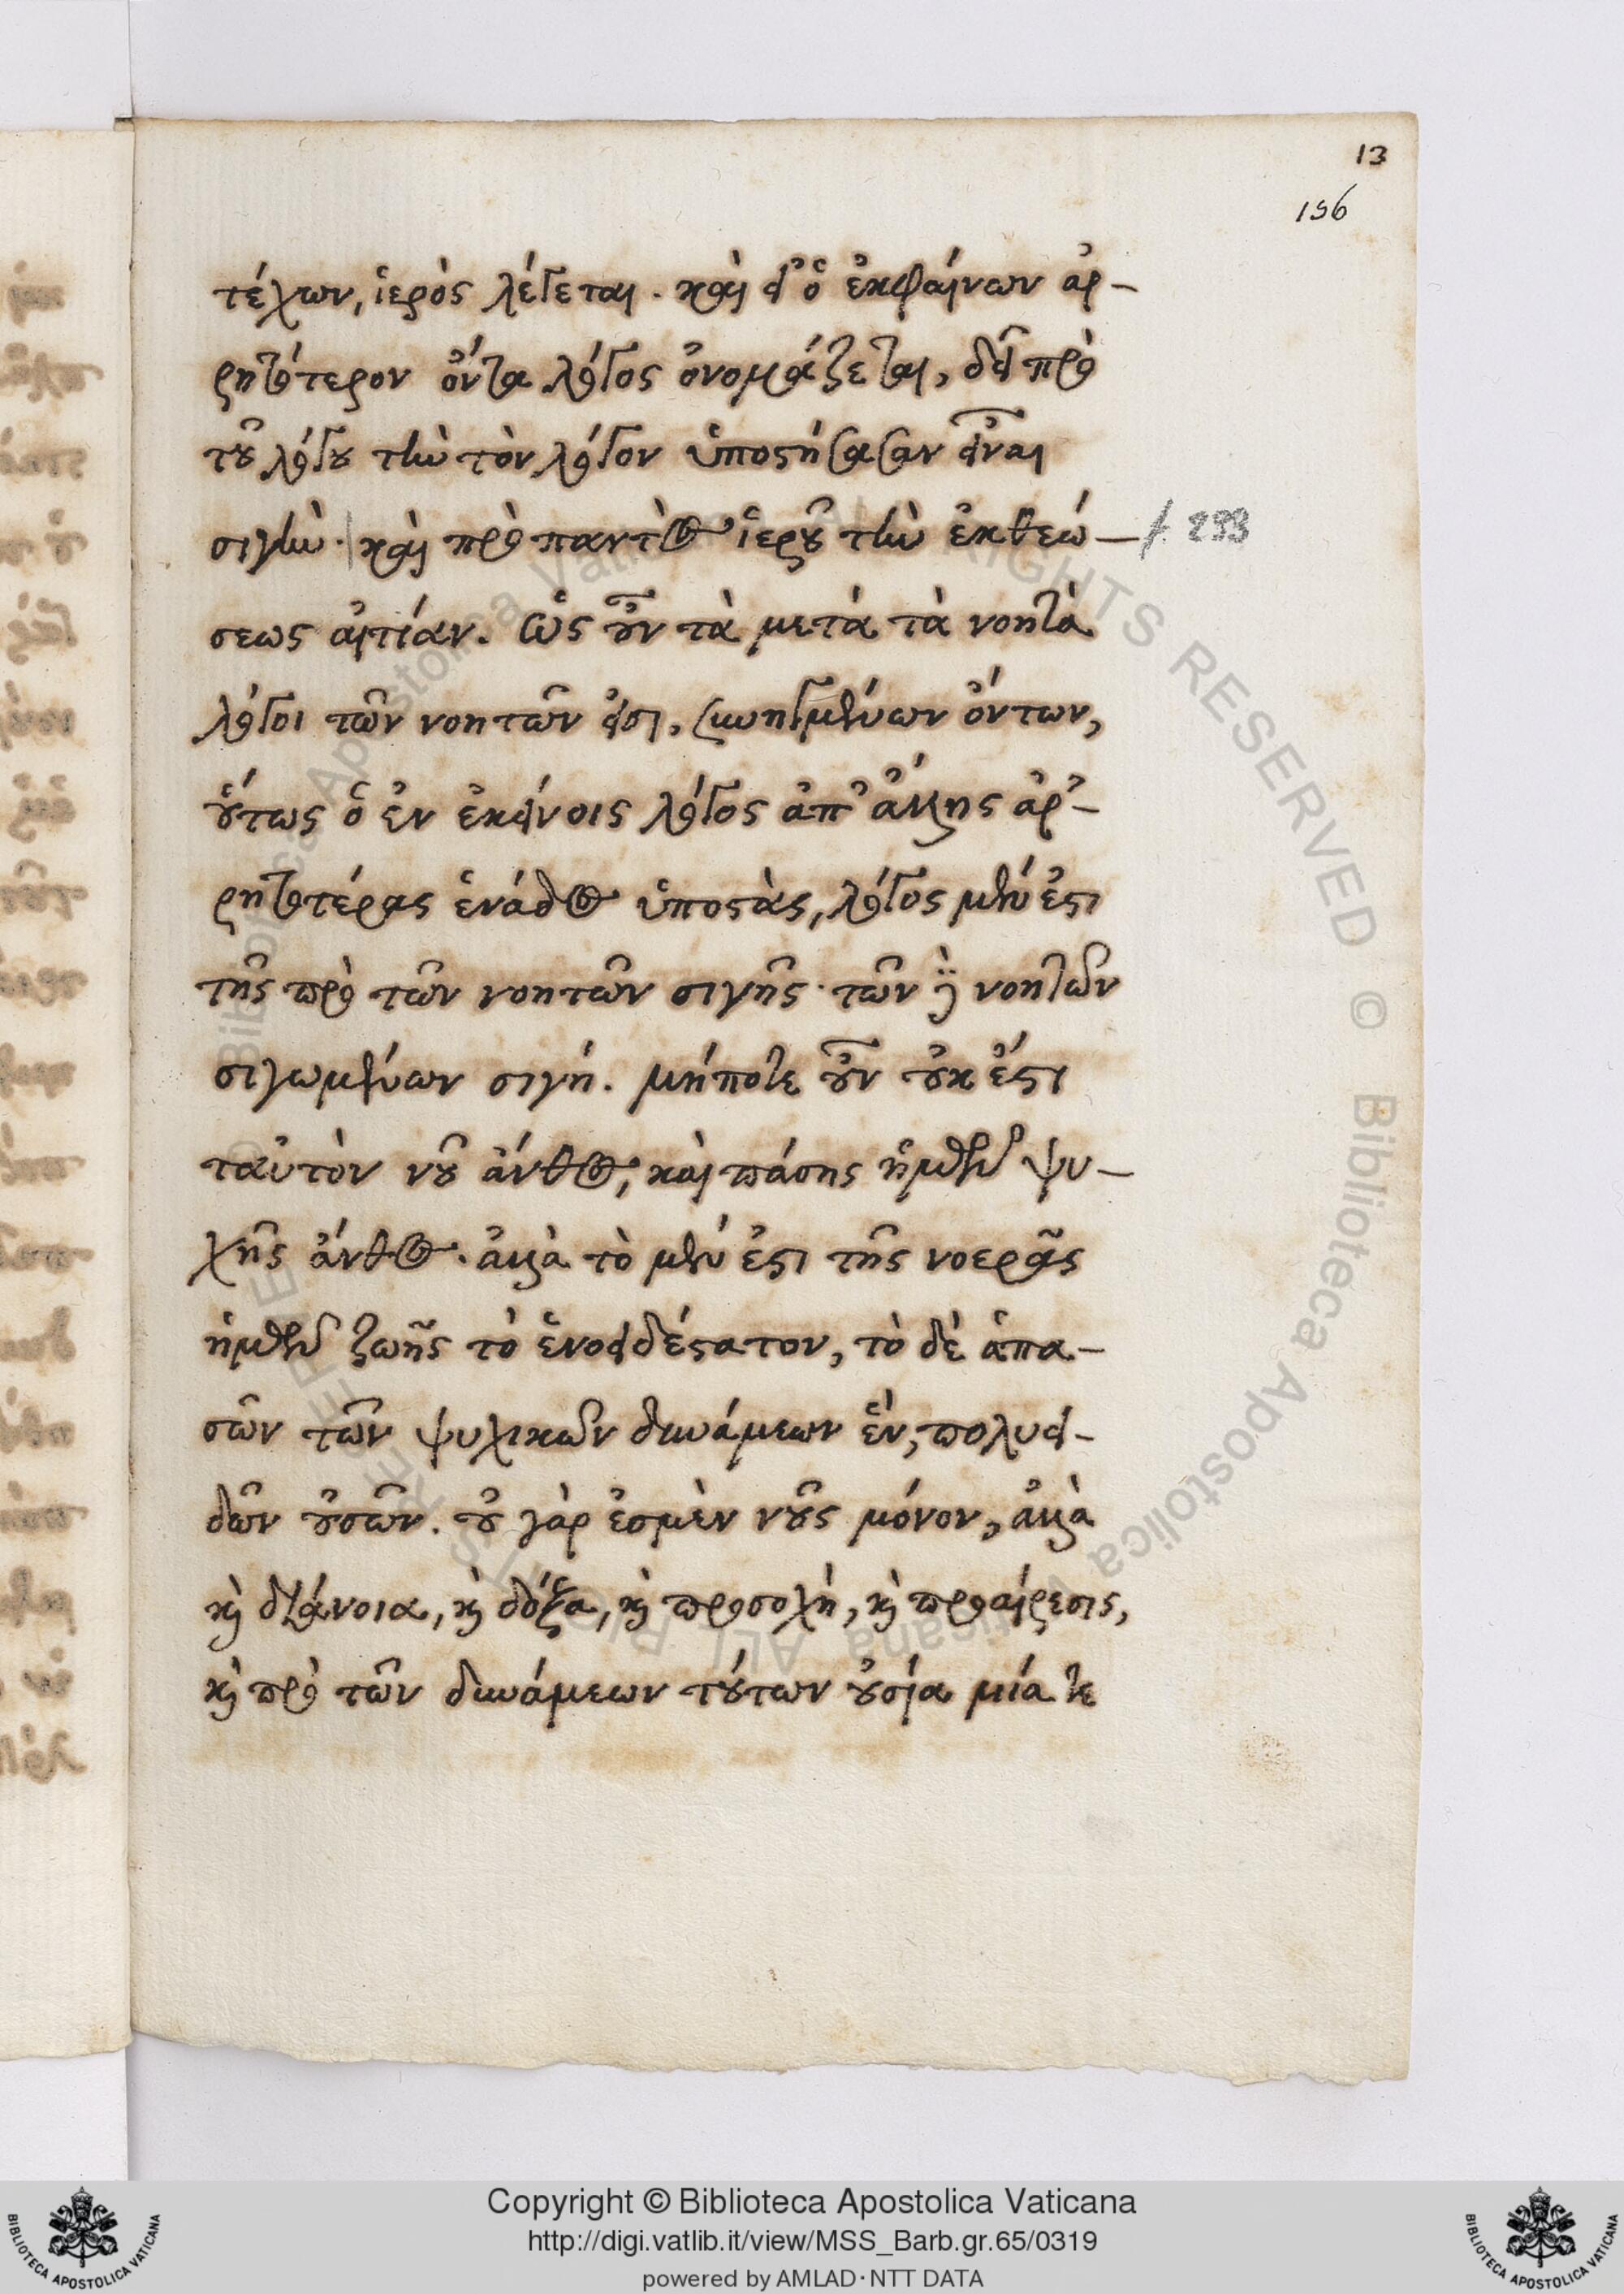 13
156
τέχων, ἱερὸς λέγεται. καὶ εἰ ὁ ἐκφαίνων ἀρ-
ρητότερον ὄντα λόγος ὀνομάζεται, δεῖ πρὸ
τοῦ λόγου τὴν τὸν λόγον ὑποστήσασαν εἶναι
σιγὴν· καὶ πρὸ παντὸς ἱεροῦ τὴν ἐκθεώ-
/. 293
σεως αἰτίαν. ὡς οὖν τὰ μετὰ τὰ νοητὰ
λόγοι τῶν νοητῶν εἰσι, συνηγμένων ὄντων,
οὕτως ὁ ἐν ἐκείνοις λόγος ἀπ' ἄλλης ἀρ-
ρητοτέρας ἑνάδος ὑποστὰς, λόγος μέν ἐστι
τῆς πρὸ τῶν νοητῶν σιγῆς· τῶν δὲ νοητῶν
σιγωμένων σιγή. μήποτε οὖν οὐκ ἔστι
ταὐτὸν νοῦ ἄνθος, καὶ πάσης ἡμῶν ψυ-
χῆς ἄνθος. ἀλλὰ τὸ μέν ἐστι τῆς νοερᾶς
ἡμῶν ζωῆς τὸ ἑνοειδέστατον, τὸ δὲ ἁπα-
σῶν τῶν ψυχικῶν δυνάμεων ἓν, πολυει-
δῶν οὐσῶν. οὐ γάρ ἐσμὲν νοῦς μόνον, ἀλλὰ
καὶ διάνοια, καὶ δόξα, καὶ προσοχὴ, καὶ προαίρεσις,
καὶ πρὸ τῶν δυνάμεων τούτων οὐσία μία τε
Copyright © Biblioteca Apostolica Vaticana
http://digi.vatlib.it/view/MSS_Barb.gr.65/0319
powered by AMLAD·NTT DATA
BIBLIOTECA APOSTOLICA VATICANA
BIBLIOTECA APOSTOLICA VATICANA